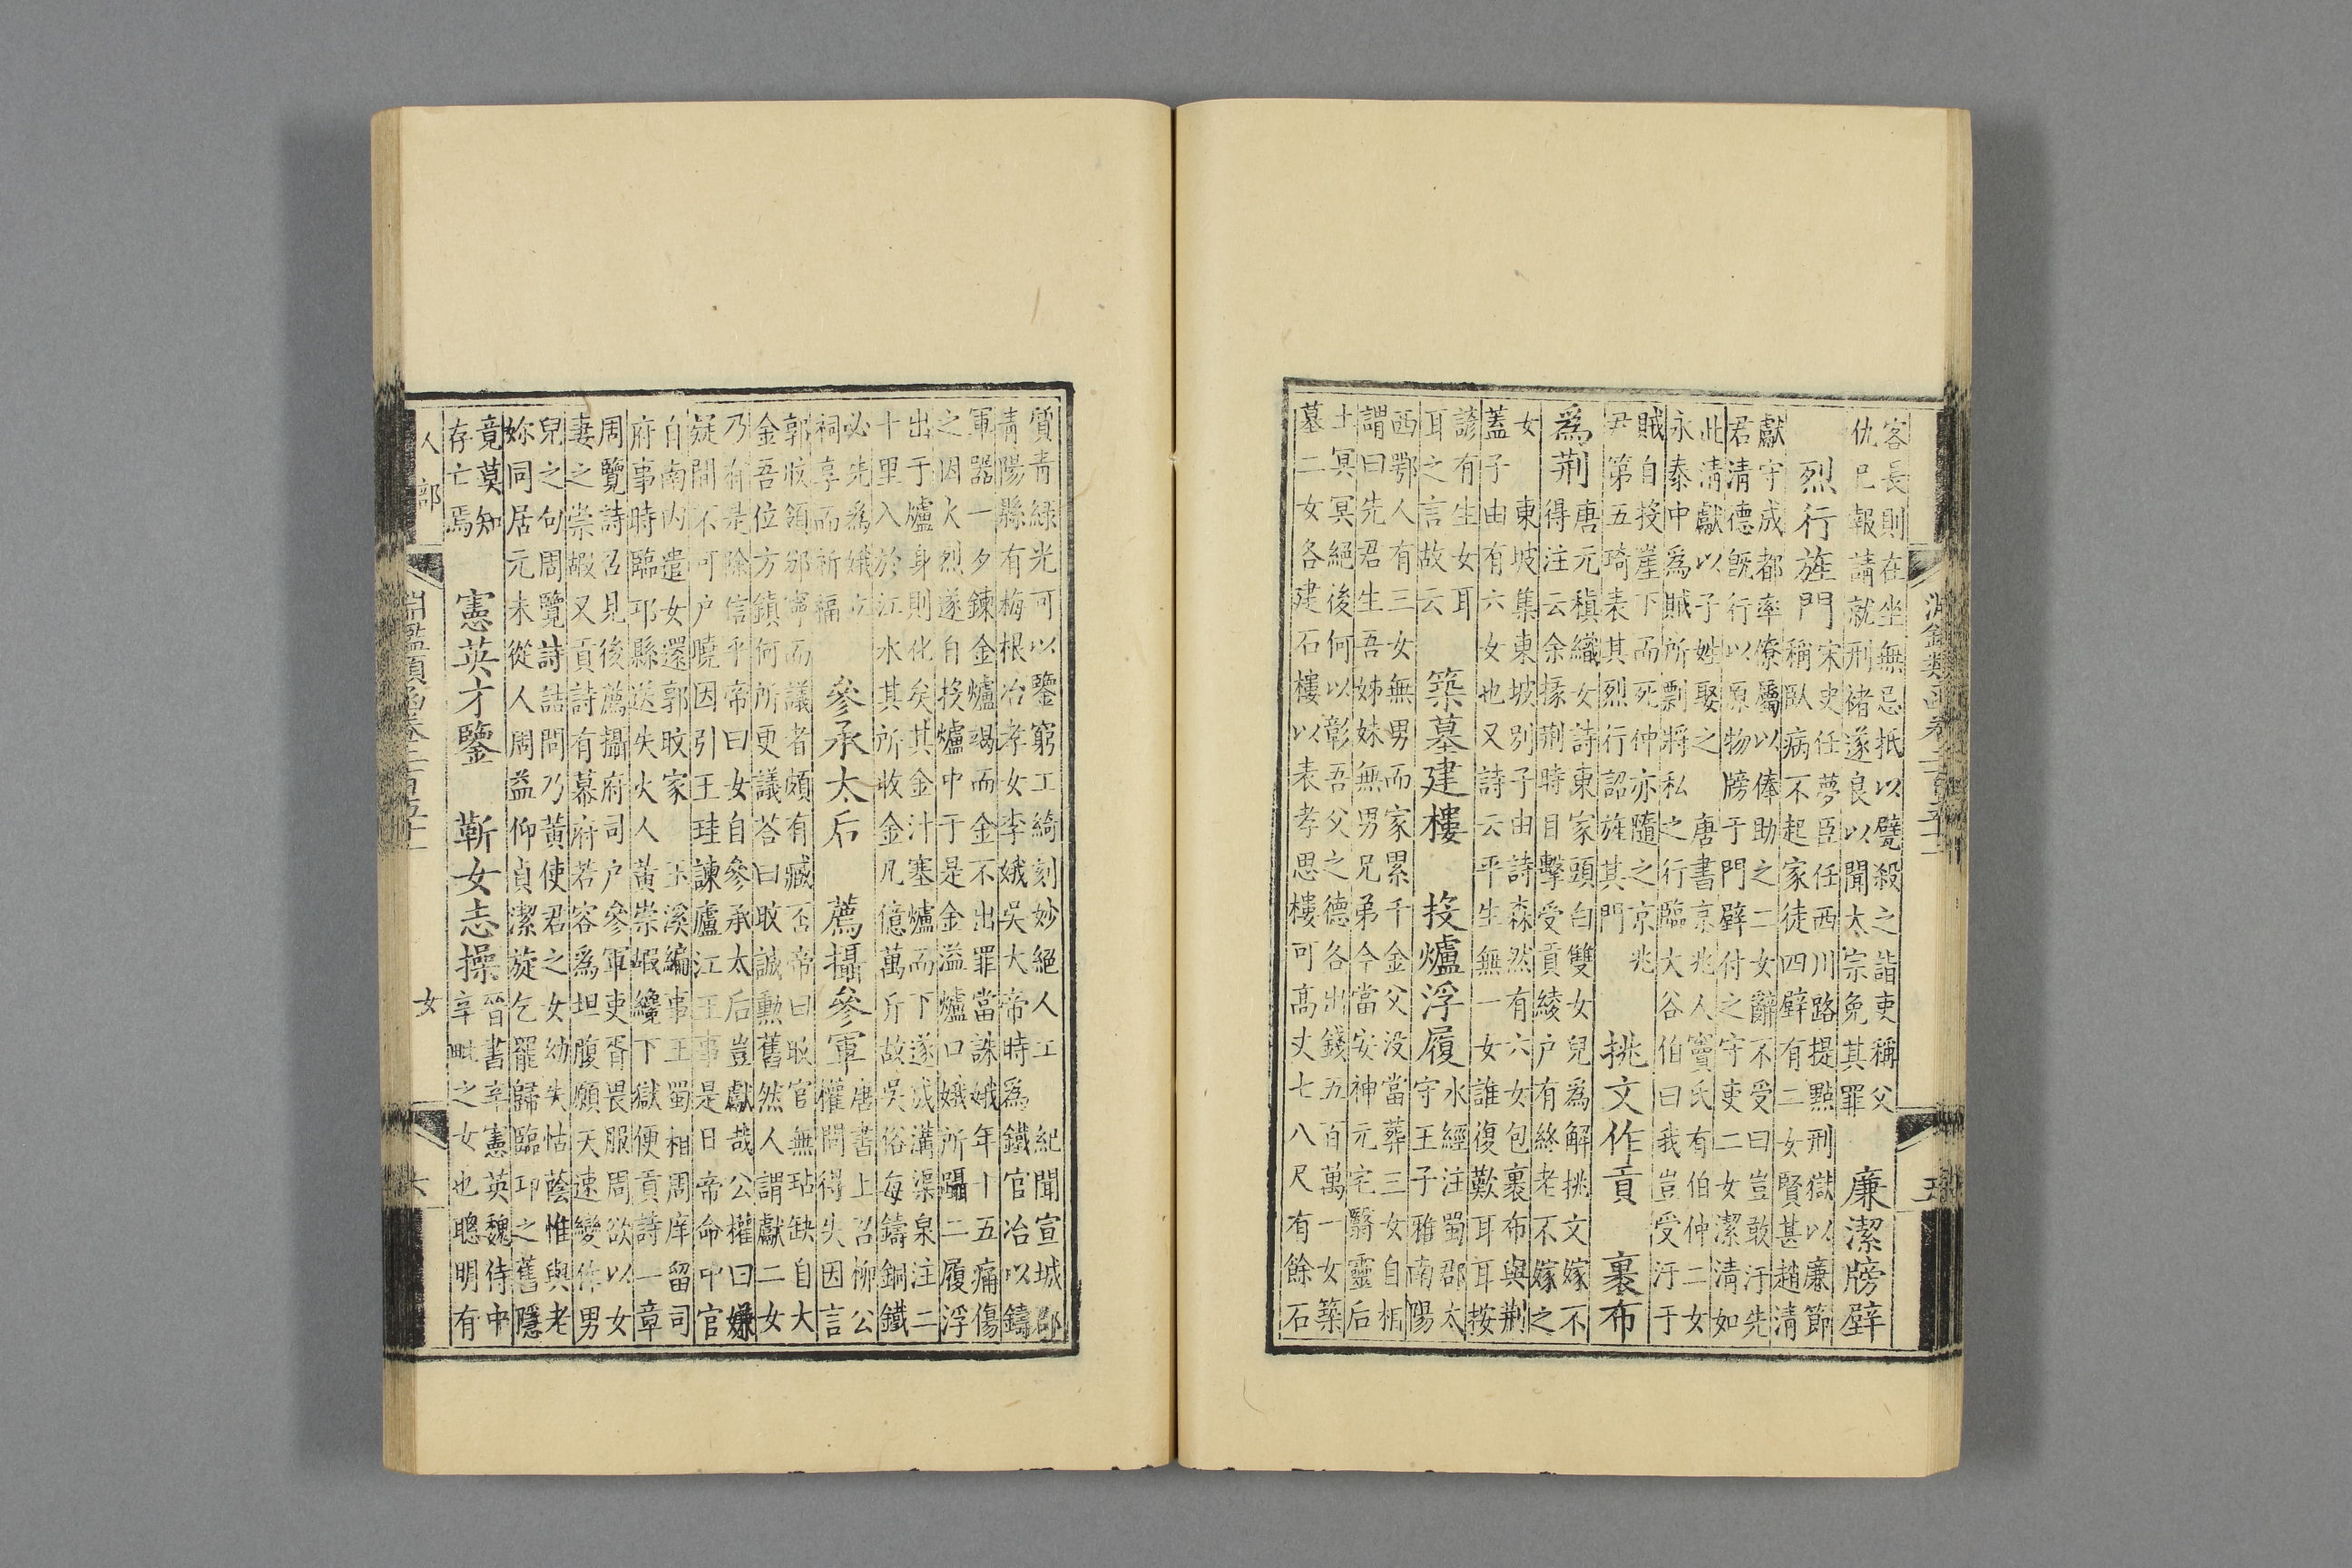 客長則在坐無忌抵以甓殺之詣吏稱父
仇已報請就刑褚遂良以聞太宗免其罪
廉潔牓壁
烈行旌門
宋史任夢臣任西川路提點刑獄以廉節
稱臥病不起家徒四壁有二女賢甚趙清
獻守成都率僚屬以俸助之二女辭不受曰豈敢汙先
君清德既行以原物牓于門壁付之守吏二女潔清如
此清獻以子姪娶之 唐書京兆人竇氏有伯仲二女
永泰中為賊所剽將私之行臨大谷伯曰我豈受汙于
賊自投崖下而死仲亦隨之京兆
尹第五琦表其烈行詔旌其門
挑文作貢 裹布
為荆
唐元稹織女詩東家頭白雙女兒為解挑文嫁不
得注云余掾荆時目擊受貢綾户有終老不嫁之
女 東坡集東坡別子由詩森然有六女包裹布與荆
蓋子由有六女也又詩云平生無一女誰復歎耳耳按
諺有生女耳
耳之言故云
築墓建樓 投爐浮履
水經注蜀郡太
守王子稚南陽
西鄂人有三女無男而家累千金父没當葬三女自相
謂曰先君生吾姊妹無男兄弟今當安神元宅翳靈后
土冥冥絕後何以彰吾父之德各出錢五百萬一女築
墓二女各建石樓以表孝思樓可高丈七八尺有餘石
質青綠光可以鑒窮工綺刻妙絕人工 紀聞宣城郡
青陽縣有梅根冶孝女李娥吳大帝時為鐵官冶以鑄
軍器一夕鍊金爐竭而金不出罪當誅娥年十五痛傷
之因火烈遂自投爐中于是金溢爐口娥所躡二履浮
出于爐身則化矣其金汁塞爐而下遂成溝渠泉注二
十里入於江水其所收金凡億萬斤故吳俗每鑄銅鐵
必先為娥立
祠享而祈福
參承太后 薦攝參軍
唐書上召柳公
權問得失因言
郭旼領邠寧而議者頗有臧否帝曰旼官無玷缺自大
金吾位方鎮何所更議荅曰旼誠勲舊然人謂獻二女
乃有是除信乎帝曰女自參承太后豈獻哉公權曰嫌
疑間不可户曉因引王珪諫廬江王事是日帝命中官
自南内遣女還郭旼家 玉溪編事王蜀相周庠留司
府事時臨邛縣送失火人黃崇嘏纔下獄便貢詩一章
周覽詩召見後薦攝府司户參軍吏胥畏服周欲以女
妻之崇嘏又貢詩有幕府若容為坦腹願天速變作男
兒之句周覽詩詰問乃黃使君之女幼失怙蔭惟與老
妳同居元未從人周益仰貞潔旋乞罷歸臨邛之舊隱
竟莫知
存亡焉
憲英才鑒 靳女志操
晉書辛憲英魏侍中
辛毗之女也聰明有
人部
女
六